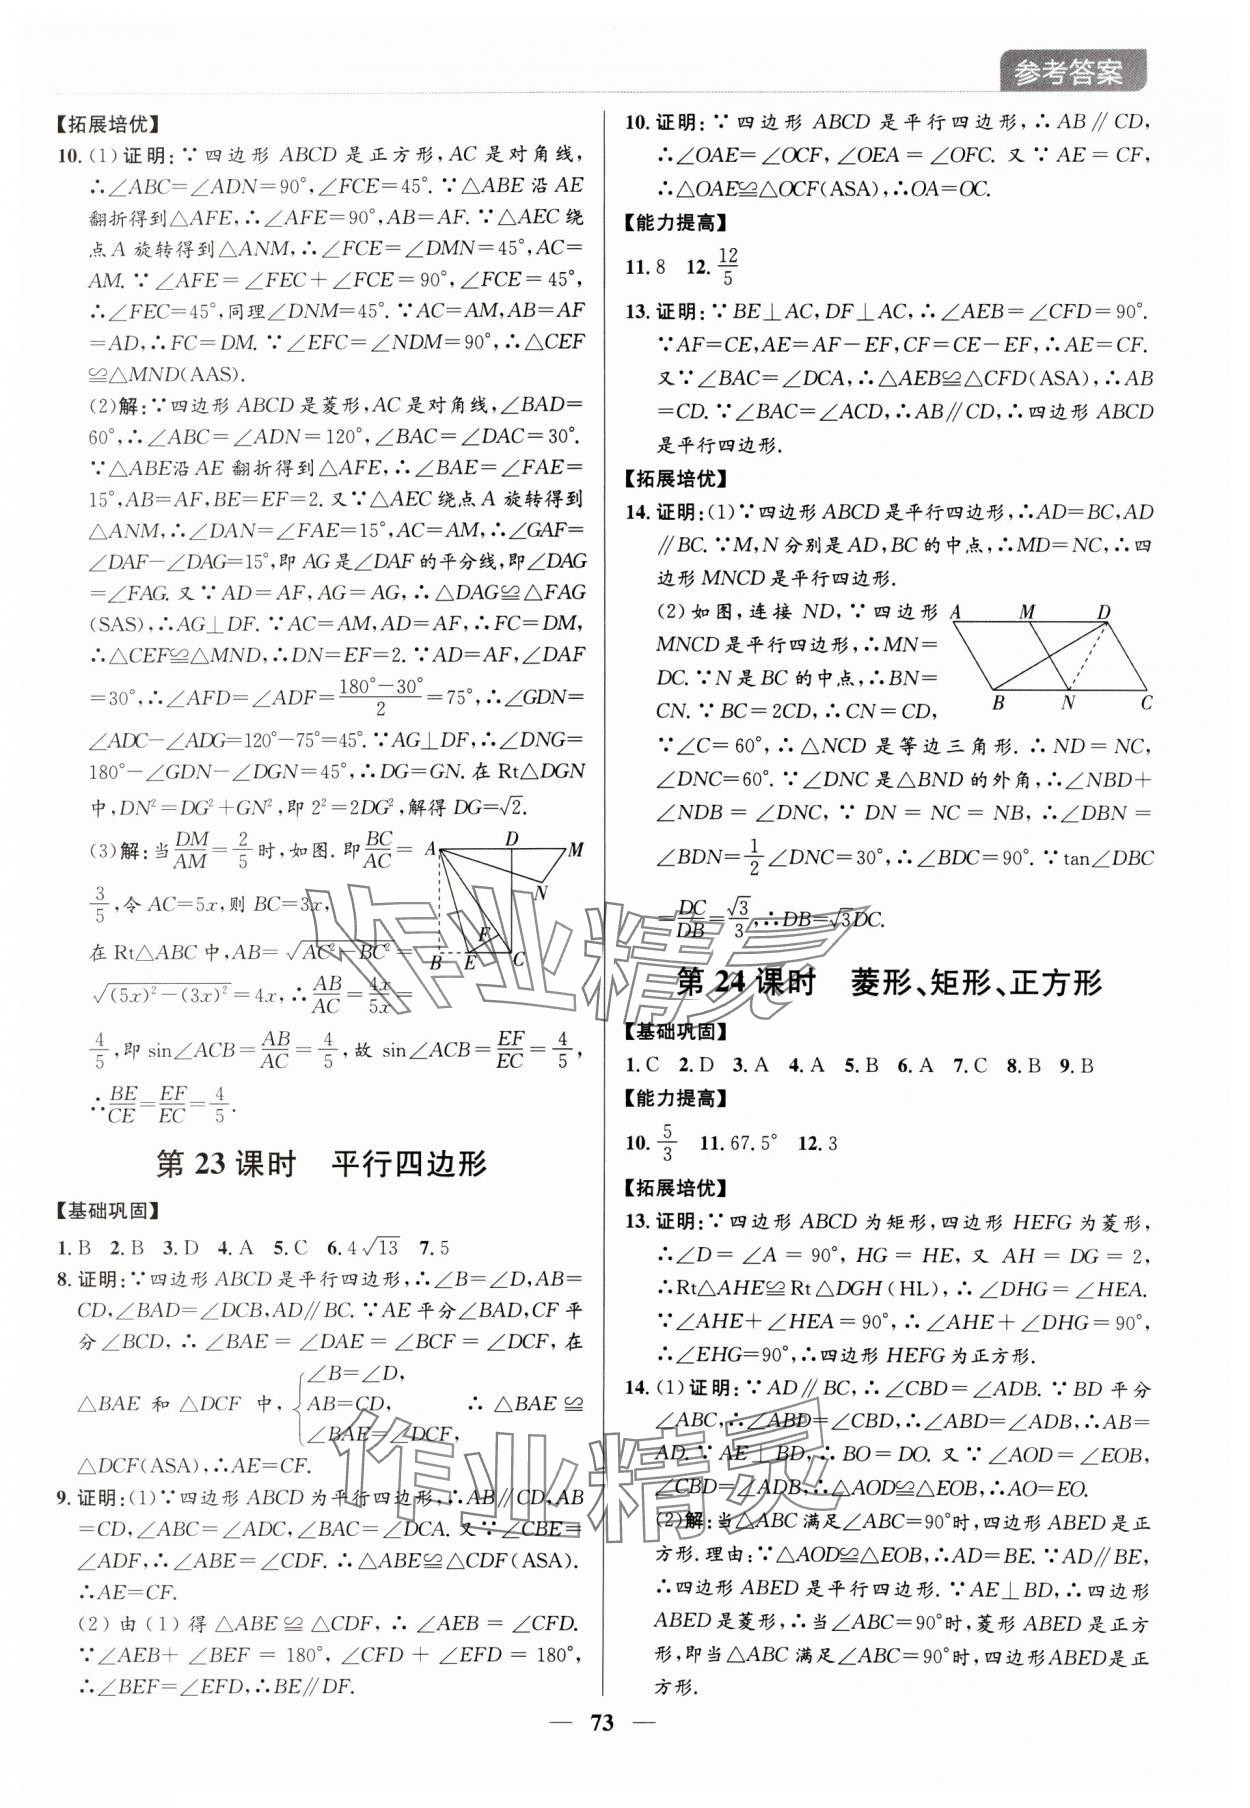 参考答案
【拓展培优】
10. (1)证明:∵四边形 ABCD 是正方形,AC 是对角线,
∴∠ABC=∠ADN=90°,∠FCE=45°. ∵△ABE 沿 AE
翻折得到△AFE,∴∠AFE=90°,AB=AF. ∵△AEC 绕
点 A 旋转得到△ANM,∴∠FCE=∠DMN=45°,AC=
AM. ∵∠AFE=∠FEC+∠FCE=90°,∠FCE=45°,
∴∠FEC=45°,同理∠DNM=45°. ∵AC=AM,AB=AF
=AD,∴FC=DM. ∵∠EFC=∠NDM=90°,∴△CEF
≌△MND(AAS).
(2)解:∵四边形 ABCD 是菱形,AC 是对角线,∠BAD=
60°,∴∠ABC=∠ADN=120°,∠BAC=∠DAC=30°.
∵△ABE沿 AE 翻折得到△AFE,∴∠BAE=∠FAE=
15°,AB=AF,BE=EF=2. 又∵△AEC 绕点 A 旋转得到
△ANM,∴∠DAN=∠FAE=15°,AC=AM,∴∠GAF=
∠DAF−∠DAG=15°,即 AG 是∠DAF 的平分线,即∠DAG
=∠FAG. 又∵AD=AF,AG=AG,∴△DAG≌△FAG
(SAS),∴AG⊥DF. ∵AC=AM,AD=AF,∴FC=DM,
∴△CEF≌△MND,∴DN=EF=2. ∵AD=AF,∠DAF
=30°,∴∠AFD=∠ADF=(180°−30°)/2=75°,∴∠GDN=
∠ADC−∠ADG=120°−75°=45°. ∵AG⊥DF,∴∠DNG=
180°−∠GDN−∠DGN=45°,∴DG=GN. 在 Rt△DGN
中,DN²=DG²+GN²,即 2²=2DG²,解得 DG=√2.
(3)解:当DM/AM=2/5时,如图. 即BC/AC=
3/5,令 AC=5x,则 BC=3x,
在 Rt△ABC 中,AB=√(AC²−BC²)=
√((5x)²−(3x)²)=4x,∴AB/AC=4x/5x=
4/5,即 sin∠ACB=AB/AC=4/5,故 sin∠ACB=EF/EC=4/5,
∴BE/CE=EF/EC=4/5.
A D M
N
F
B E C
第 23 课时 平行四边形
【基础巩固】
1. B 2. B 3. D 4. A 5. C 6. 4√13 7. 5
8. 证明:∵四边形 ABCD 是平行四边形,∴∠B=∠D,AB=
CD,∠BAD=∠DCB,AD∥BC. ∵AE 平分∠BAD,CF 平
分∠BCD,∴∠BAE=∠DAE=∠BCF=∠DCF,在
∠B=∠D,
△BAE 和 △DCF 中,{AB=CD, ∴△BAE≌
∠BAE=∠DCF,
△DCF(ASA),∴AE=CF.
9. 证明:(1)∵四边形 ABCD 为平行四边形,∴AB∥CD,AB
=CD,∠ABC=∠ADC,∠BAC=∠DCA. 又∵∠CBE=
∠ADF,∴∠ABE=∠CDF. ∴△ABE≌△CDF(ASA).
∴AE=CF.
(2)由(1)得△ABE≌△CDF,∴∠AEB=∠CFD.
∵∠AEB+∠BEF=180°,∠CFD+∠EFD=180°,
∴∠BEF=∠EFD,∴BE∥DF.
10. 证明:∵四边形 ABCD 是平行四边形,∴AB∥CD,
∴∠OAE=∠OCF,∠OEA=∠OFC. 又∵AE=CF,
∴△OAE≌△OCF(ASA),∴OA=OC.
【能力提高】
11. 8 12. 12/5
13. 证明:∵BE⊥AC,DF⊥AC,∴∠AEB=∠CFD=90°.
∵AF=CE,AE=AF−EF,CF=CE−EF,∴AE=CF.
又∵∠BAC=∠DCA,∴△AEB≌△CFD(ASA),∴AB
=CD. ∵∠BAC=∠ACD,∴AB∥CD,∴四边形 ABCD
是平行四边形.
【拓展培优】
14. 证明:(1)∵四边形 ABCD 是平行四边形,∴AD=BC,AD
∥BC. ∵M,N 分别是 AD,BC 的中点,∴MD=NC,∴四
边形 MNCD 是平行四边形.
(2)如图,连接 ND,∵四边形
MNCD 是平行四边形,∴MN=
DC. ∵N 是 BC 的中点,∴BN=
CN. ∵BC=2CD,∴CN=CD,
A M D
B N C
∵∠C=60°,∴△NCD 是等边三角形. ∴ND=NC,
∠DNC=60°. ∵∠DNC 是△BND 的外角,∴∠NBD+
∠NDB=∠DNC,∵DN=NC=NB,∴∠DBN=
∠BDN=1/2∠DNC=30°,∴∠BDC=90°. ∵tan∠DBC
=DC/DB=√3/3,∴DB=√3DC.
第 24 课时 菱形、矩形、正方形
【基础巩固】
1. C 2. D 3. A 4. A 5. B 6. A 7. C 8. B 9. B
【能力提高】
10. 5/3 11. 67.5° 12. 3
【拓展培优】
13. 证明:∵四边形 ABCD 为矩形,四边形 HEFG 为菱形,
∴∠D=∠A=90°,HG=HE,又 AH=DG=2,
∴Rt△AHE≌Rt△DGH(HL),∴∠DHG=∠HEA.
∵∠AHE+∠HEA=90°,∴∠AHE+∠DHG=90°,
∴∠EHG=90°,∴四边形 HEFG 为正方形.
14. (1)证明:∵AD∥BC,∴∠CBD=∠ADB. ∵BD 平分
∠ABC,∴∠ABD=∠CBD,∴∠ABD=∠ADB,∴AB=
AD. ∵AE⊥BD,∴BO=DO. 又∵∠AOD=∠EOB,
∠CBD=∠ADB,∴△AOD≌△EOB,∴AO=EO.
(2)解:当△ABC 满足∠ABC=90°时,四边形 ABED 是正
方形. 理由:∵△AOD≌△EOB,∴AD=BE. ∵AD∥BE,
∴四边形 ABED 是平行四边形. ∵AE⊥BD,∴四边形
ABED 是菱形,∴当∠ABC=90°时,菱形 ABED 是正方
形,即当△ABC 满足∠ABC=90°时,四边形ABED是正
方形.
— 73 —
作业精灵
作业精灵